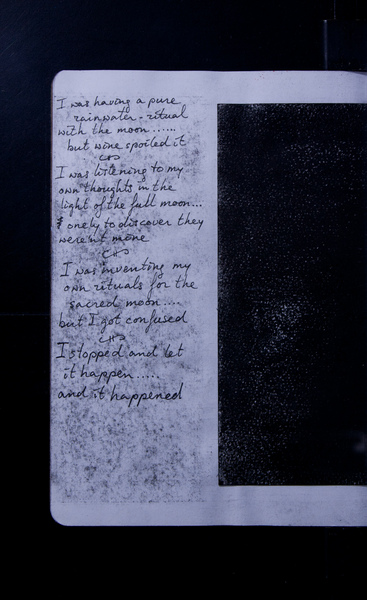 I was having a pure
rainwater-ritual
with the moon......
but wine spoiled it
I was listening to my
own thoughts in the
light of the full moon...
& only to discover they
weren't mine
I was inventing my
own rituals for the
sacred moon....
but I got confused
I stopped and let
it happen.....
and it happened